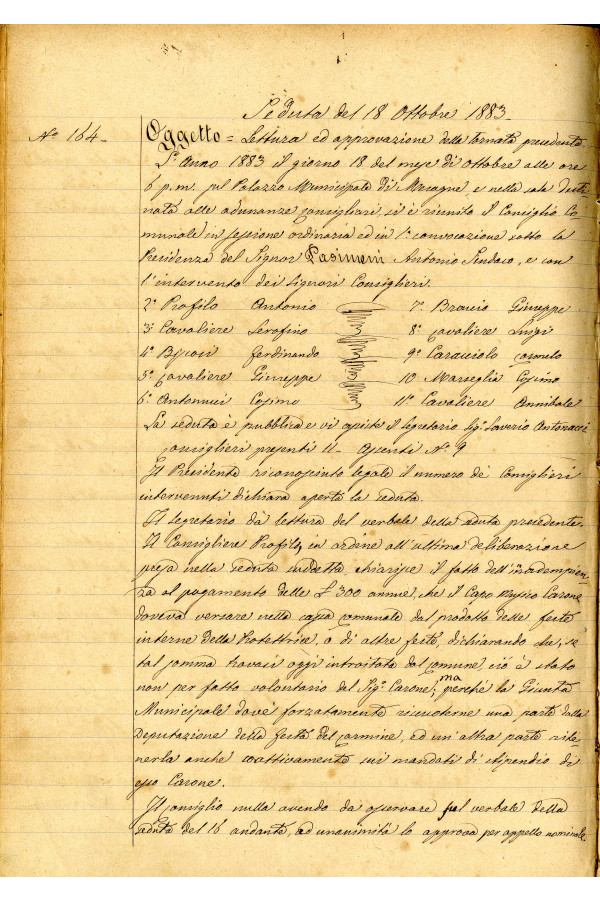 Seduta del 18 Ottobre 1883-
No 164- Oggetto = Lettura ed approvazione della tornata precedente
L'Anno 1883 il giorno 18 del mese di Ottobre alle ore
6 p.m. sul Palazzo Municipale di Mesagne e nella sala desti
nata alle adunanze consigliari, si è riunito il Consiglio Co
munale in sessione ordinaria ed in 1a convocazione sotto la
Presidenza del Signor Pasimeni Antonio Sindaco, e con
l'intervento dei Signori Consiglieri.
2o Profilo Antonio 7o Braccio Giuseppe
3o Cavaliere Serafino 8o Cavaliere Luigi
4o Ferdinando 9o Caraciolo Cosimo
5o Cavaliere Giuseppe 10 Marseglia Cosimo
6o Antonucci Cosimo 11o Cavaliere Annibale
La seduta è pubblica e vi assiste il Segretario Sigr Saverio Antonucci
Consiglieri presenti 11- Assenti No 9
Il Presidente riconosciuto legale il numero dei Consiglieri
intervenuti dichiara aperta la seduta.
Il Segretario dà lettura del verbale della seduta precedente.
Il Consigliere Profilo, in ordine all'ultima deliberazione
presa nella seduta suddetta chiarisce il fatto dell'inadempien
za al pagamento delle £ 300 annue, che il Capo Musico Carone
doveva versare nella cassa comunale dal prodotto delle feste
interne della Protettrice, o di altre feste, dichiarando che, se
tal somma trovasi oggi introitata dal Comune, ciò è stato
non per fatto volontario del Sigr Carone, ma perché la Giunta
Municipale dové forzatamente riscuoterne una parte dalla
Deputazione della festa del Carmine, ed un'altra parte rite
nerla anche coattivamente sui mandati di stipendio di
esso Carone.
Il Consiglio nulla avendo da osservare sul verbale della
seduta del 16 andante, ad unanimità lo approva per appello nominale.